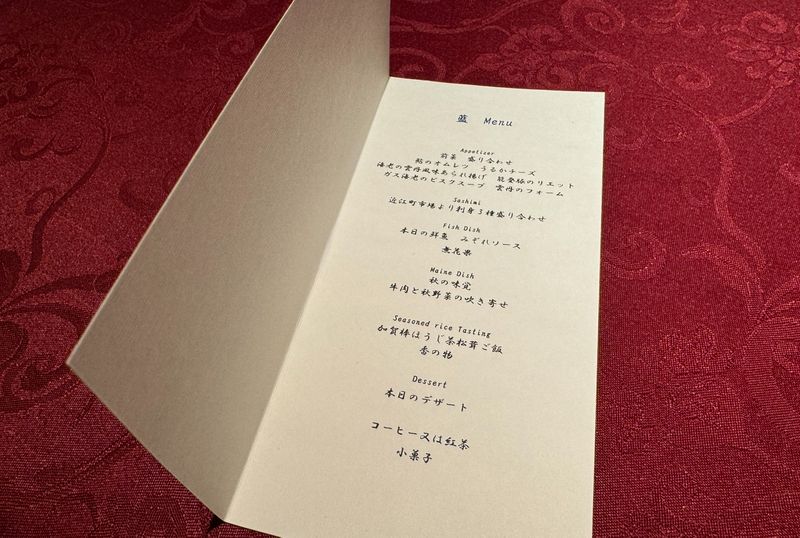 藍 Menu
Appetizer
前菜 盛り合わせ
鮎のオムレツ うるかチーズ
海老の雲丹風味あられ揚げ 能登豚のリエット
ガス海老のビスクスープ 雲丹のフォーム
Sashimi
近江町市場より刺身3種盛り合わせ
Fish Dish
本日の鮮魚 みぞれソース
無花果
Maine Dish
秋の味覚
牛肉と秋野菜の吹き寄せ
Seasoned rice Tasting
加賀棒ほうじ茶松茸ご飯
香の物
Dessert
本日のデザート
コーヒー又は紅茶
小菓子